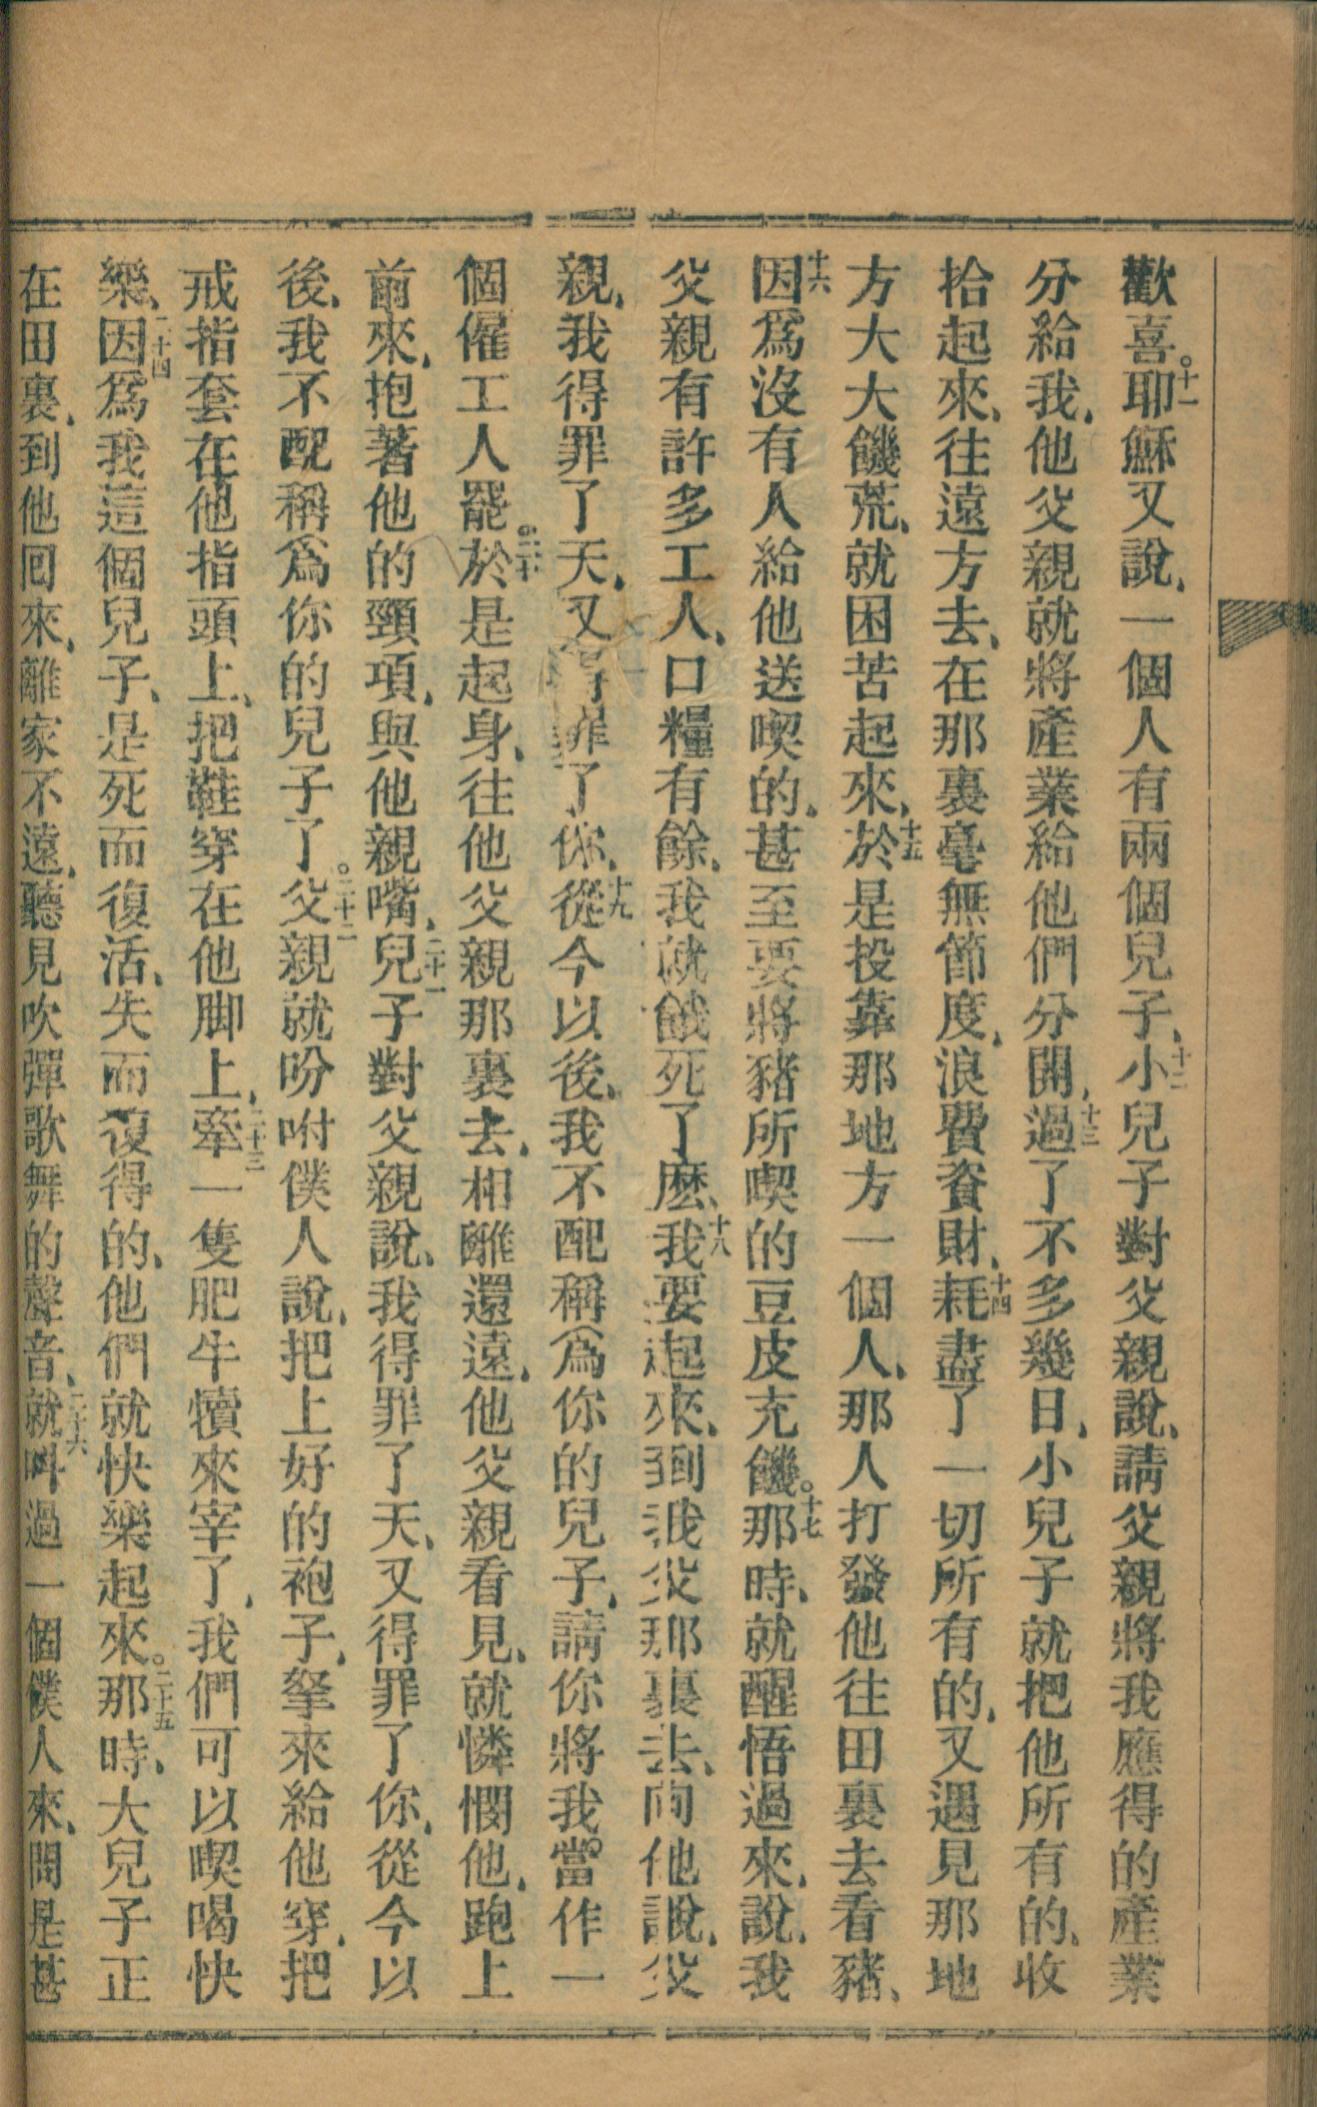 歡喜。十一耶穌又說、一個人有兩個兒子、十二小兒子對父親說、請父親將我應得的產業
分給我、他父親就將產業給他們分開、十三過了不多幾日、小兒子就把他所有的、收
拾起來、往遠方去、在那裏毫無節度、浪費資財、十四耗盡了一切所有的、又遇見那地
方大大饑荒、就困苦起來、十五於是投靠那地方一個人、那人打發他往田裏去看豬、
十六因爲沒有人給他送喫的、甚至要將豬所喫的豆皮充饑。十七那時、就醒悟過來、說、我
父親有許多工人、口糧有餘、我就餓死了麽、十八我要起來、到我父那裏去、向他說、父
親、我得罪了天、又得罪了你、十九從今以後、我不配稱爲你的兒子、請你將我當作一
個僱工人罷。二十於是起身、往他父親那裏去、相離還遠、他父親看見、就憐憫他、跑上
前來、抱著他的頸項、與他親嘴、二十一兒子對父親說、我得罪了天、又得罪了你、從今以
後、我不配稱爲你的兒子了。二十二父親就吩咐僕人說、把上好的袍子、拏來給他穿、把
戒指套在他指頭上、把鞋穿在他脚上、二十三牽一隻肥牛犢來宰了、我們可以喫喝快
樂、二十四因爲我這個兒子、是死而復活、失而復得的、他們就快樂起來。二十五那時、大兒子正
在田裏、到他回來、離家不遠、聽見吹彈歌舞的聲音、二十六就叫過一個僕人來、問是甚